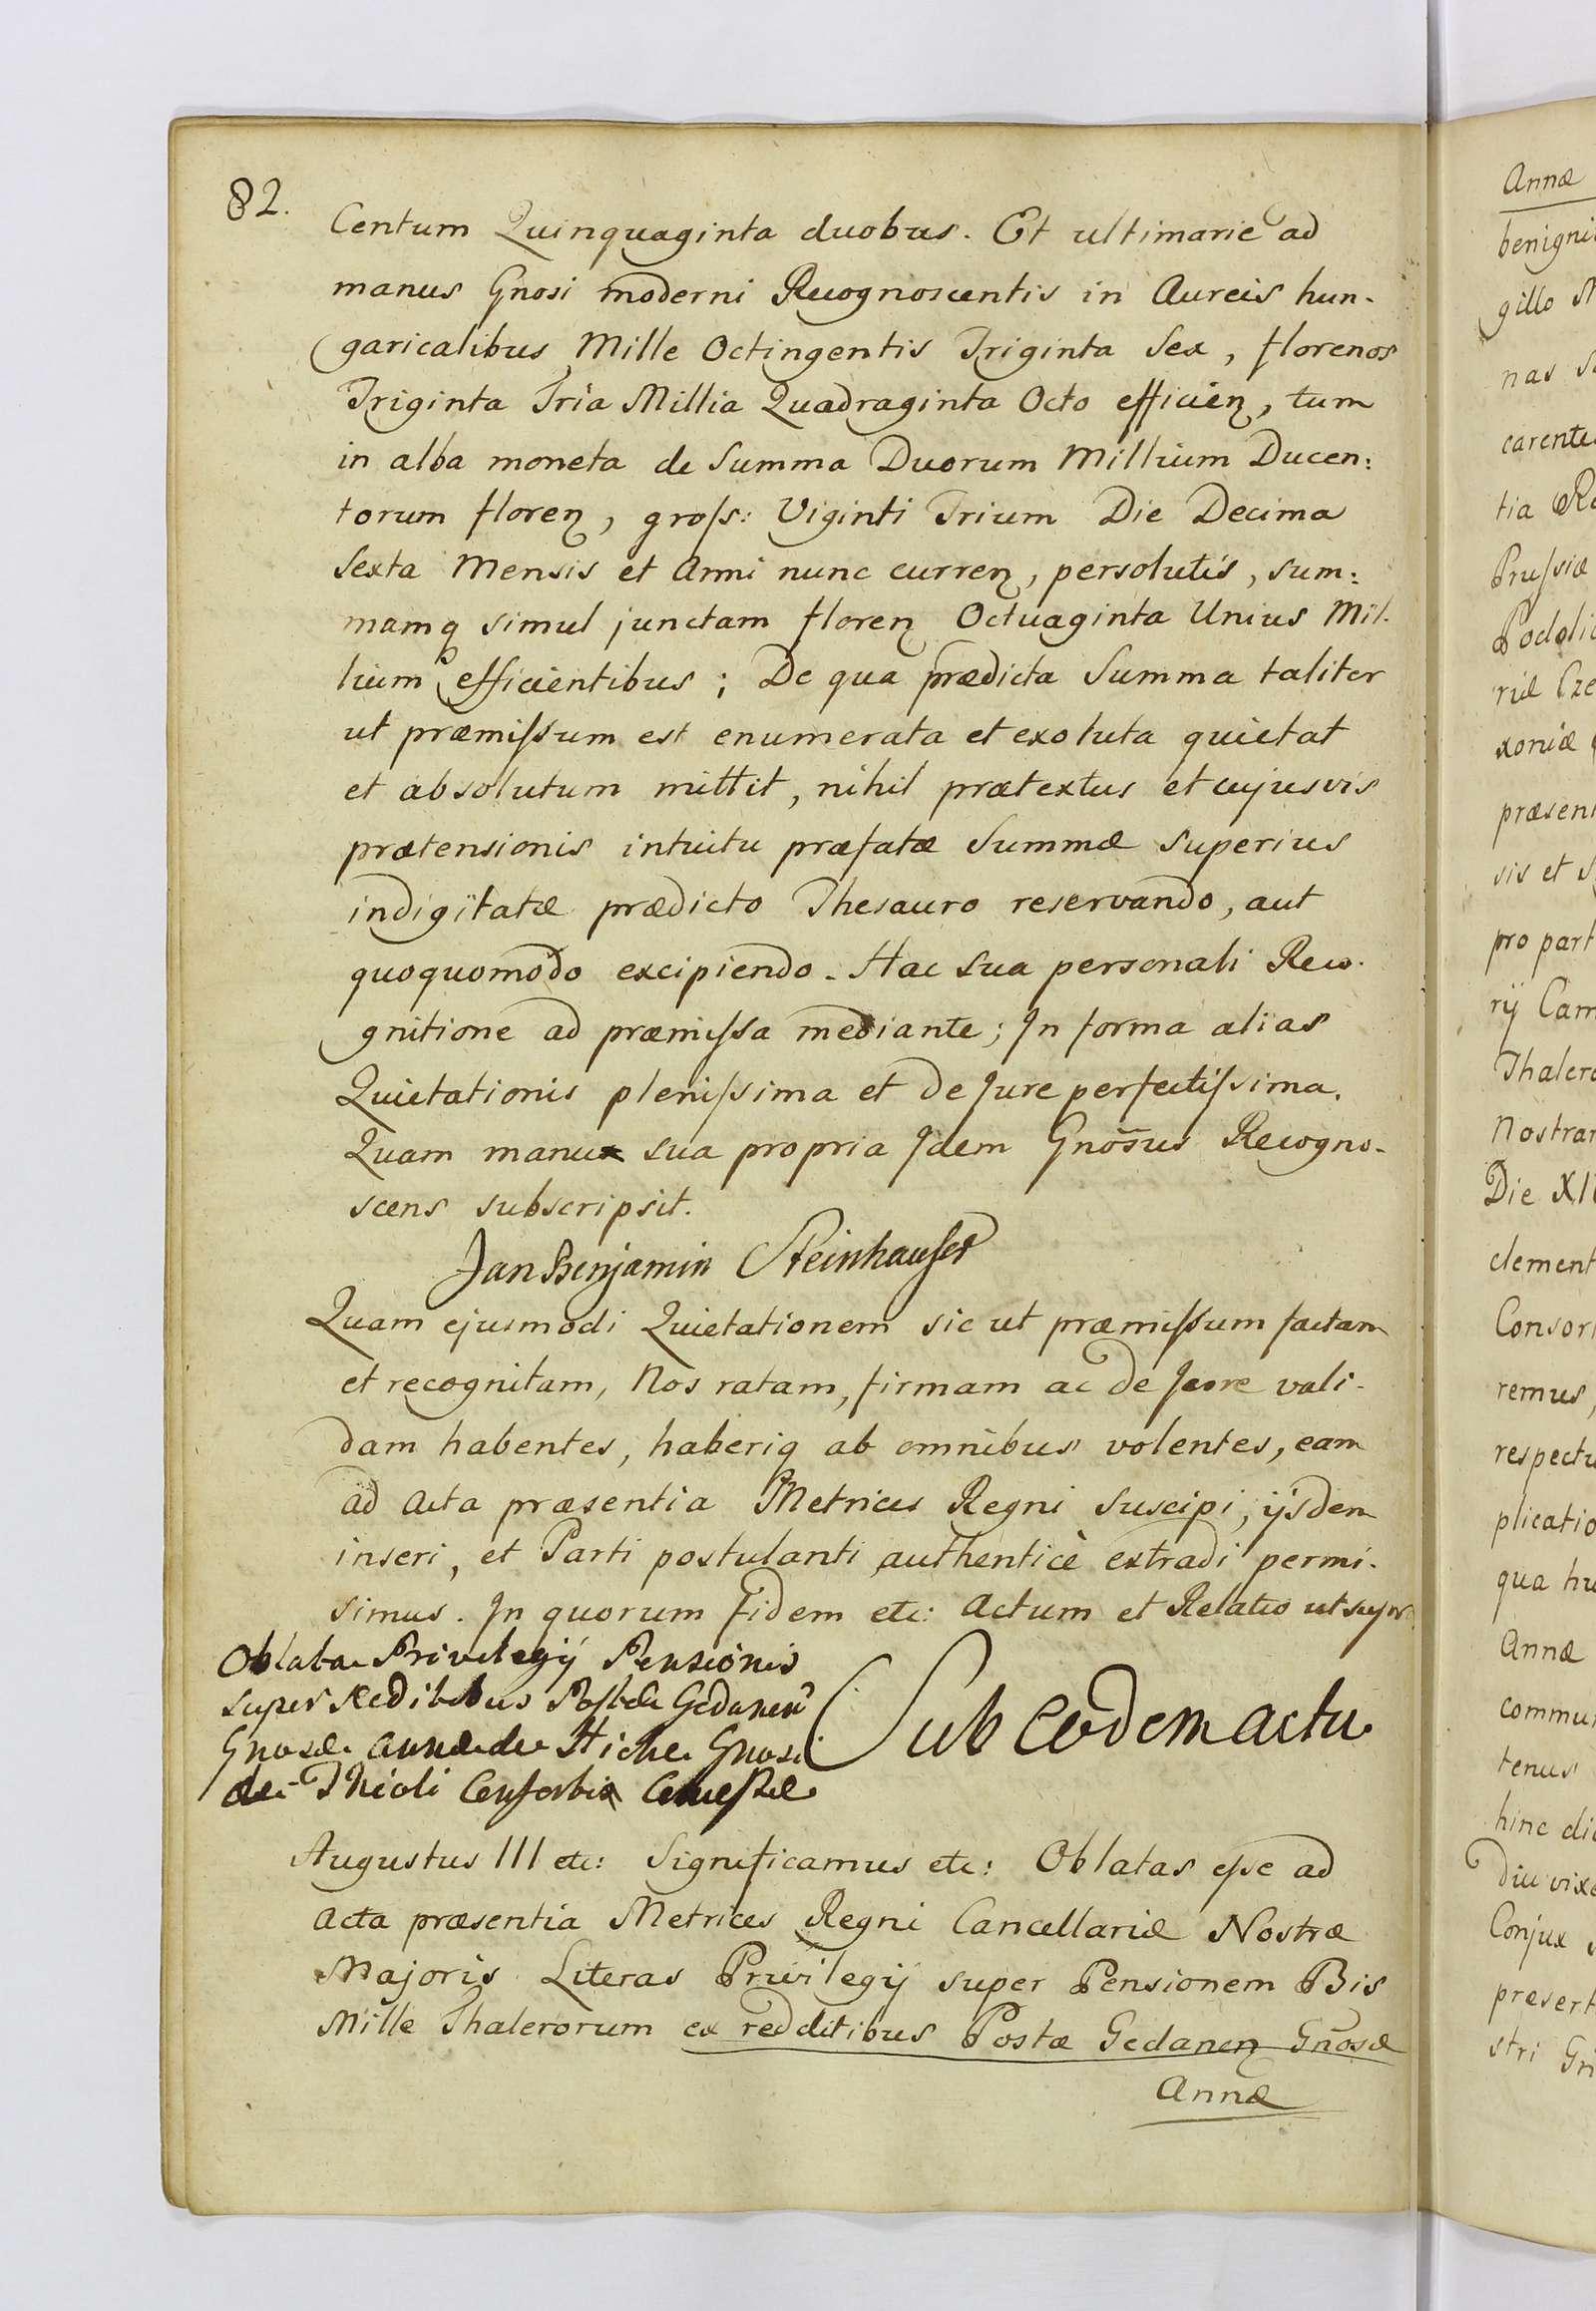 82.
Centum Quinquaginta duobus. Et ultimarie ad
manus Gnosi moderni Recognoscentis in Aureis hun-
garicalibus Mille Octingentis Triginta Sex, florenos
Triginta Tria Millia Quadraginta Octo efficien, tum
in alba moneta de Summa Duorum Millium Ducen:
torum floren, gross: Viginti Trium Die Decima
Sexta Mensis et Anni nunc curren, persolutis, sum:
mamq simul junctam floren Octuaginta Unius Mil-
lium efficientibus; De qua prædicta Summa taliter
ut præmissum est enumerata et exoluta quietat
et absolutum mittit, nihil prætextus et cujusvis
prætensionis intuitu præfatæ Summæ superius
indigitatæ prædicto Thesauro reservando, aut
quoquomodo excipiendo. Hac sua personali Reco-
gnitione ad præmissa mediante; In forma alias
Quietationis plenissima et de Jure perfectissima.
Quam manu sua propria Idem Gnosus Recogno-
scens subscripsit.
Jan Benjamin Steinhauser
Quam ejusmodi Quietationem sic ut præmissum factam
et recognitam, Nos ratam, firmam ac de Jure vali-
dam habentes, haberiq ab omnibus volentes, eam
ad Acta præsentia Metrices Regni suscipi, ijsdem
inseri, et Parti postulanti authenticè extradi permi-
simus. In quorum fidem etc: Actum et Relatio ut supr
Oblata Privilegij Pensionis
super Reditibus Postæ Gedanen
Gnosæ Annæ de Hiche Gnosi
de Thioli Consortis
Sub eodem actu
Augustus III etc: Significamus etc: Oblatas esse ad
Acta præsentia Metrices Regni Cancellariæ Nostræ
Majoris Literas Privilegij super Pensionem Bis
Mille Thalerorum ex redditibus Postæ Gedanen Gnosæ
Annæ
Annæ
benigni
gillo
nas
carente
tia
Prussiæ
Podoli
riæ Cze
xoniæ
præsen
sis et
pro part
rij Cam
Thalero
Nostrar
Die XII
clement
Consor
remus,
respectu
plicatio
qua hu
Annæ
commu
tenus
hinc di
Diu vix
Conjux
præsert
stri Gn